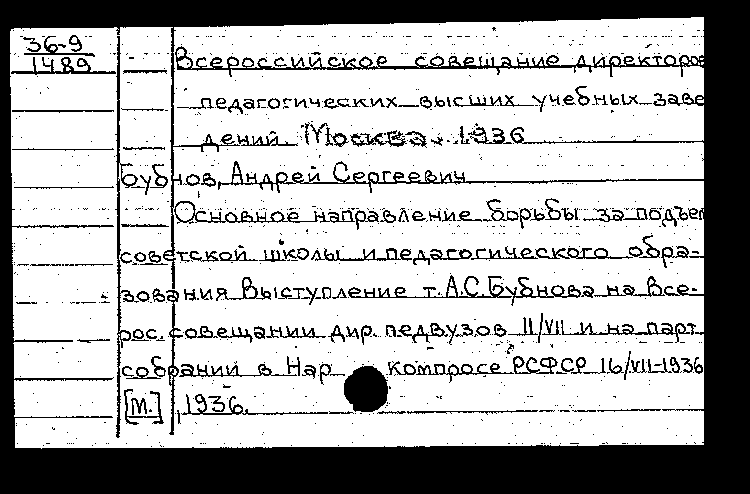 36-9
1489
Всероссийское совещание директоров
педагогических высших учебных заве
дений. Москва. 1936
Бубнов, Андрей Сергеевич
Основное направление борьбы за подъем
советской школы и педагогического обра-
зования Выступление т. А.С. Бубнова на Все-
рос. совещании дир. педвузов 11/VII и на парт.
собрании в Нар компросе РСФСР 16/VII-1936
[М.], 1936.